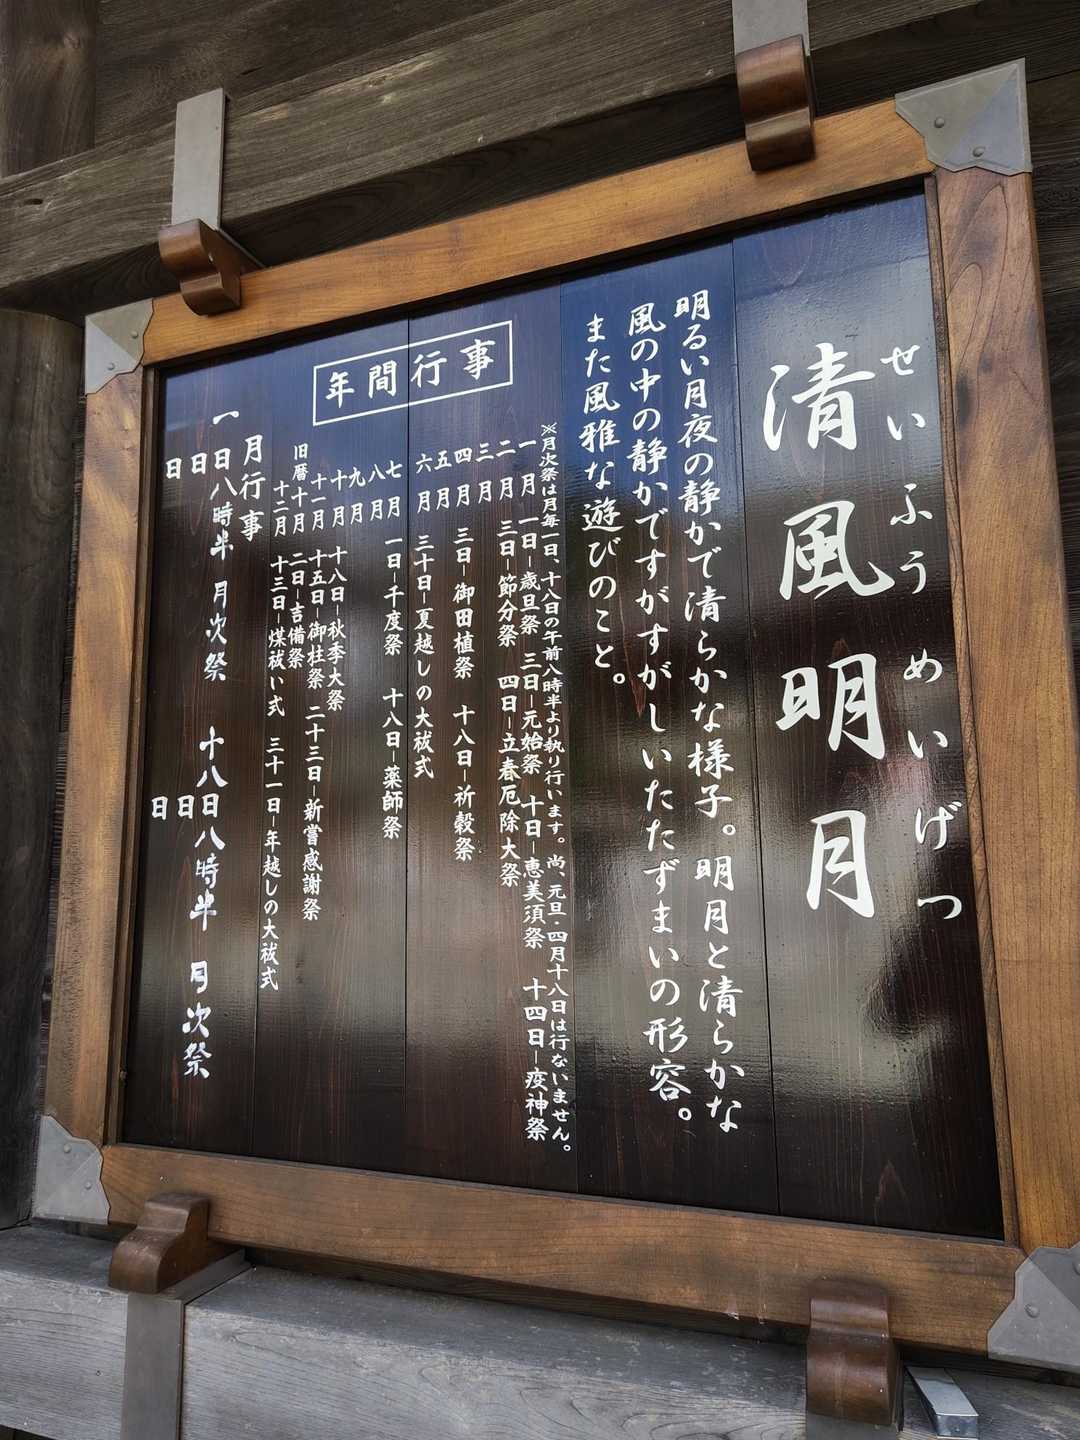 せいふうめいげつ
清風明月
明るい月夜の静かで清らかな様子。明月と清らかな
風の中の静かですがすがしいたたずまいの形容。
また風雅な遊びのこと。
年間行事
※月次祭は月毎一日、十八日の午前八時半より執り行います。尚、元旦・四月十八日は行ないません。
一月 一日－歳旦祭 三日－元始祭 十日－恵美須祭 十四日－疫神祭
二月 三日－節分祭 四日－立春厄除大祭
三月
四月 三日－御田植祭 十八日－祈穀祭
五月
六月 三十日－夏越しの大祓式
七月 一日－千度祭 十八日－薬師祭
八月
九月
十月 十八日－秋季大祭
十一月 十五日－御柱祭 二十三日－新嘗感謝祭
旧暦十月 二日－吉備祭
十二月 十三日－煤祓い式 三十一日－年越しの大祓式
月行事
一日八時半 月次祭 十八日八時半 月次祭
日 日
日 日